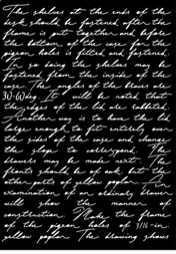 The shelves at the ends of the
desk should be fastened after the
frame is put together and before
the bottom of the case for the
pigeon holes is fitted and fastened.
In so doing the shelves may be
fastened from the inside of the
case. The angles of the bevel are
30-60 deg. It will be noted that
the edges of the lid are rabbeted.
Another way is to have the lid
large enough to fit entirely over
the sides of the case and change
the slope correspondingly. The
drawers may be made next. The
fronts should be of oak but the
other parts of yellow poplar. An
examination of an ordinary drawer
will show the manner of
construction. Make the frame
of the pigeon holes of 3/16-in.
yellow poplar. The drawing shows